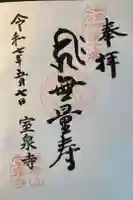 奉拝
無量寿
令和七年五月七日
室泉寺